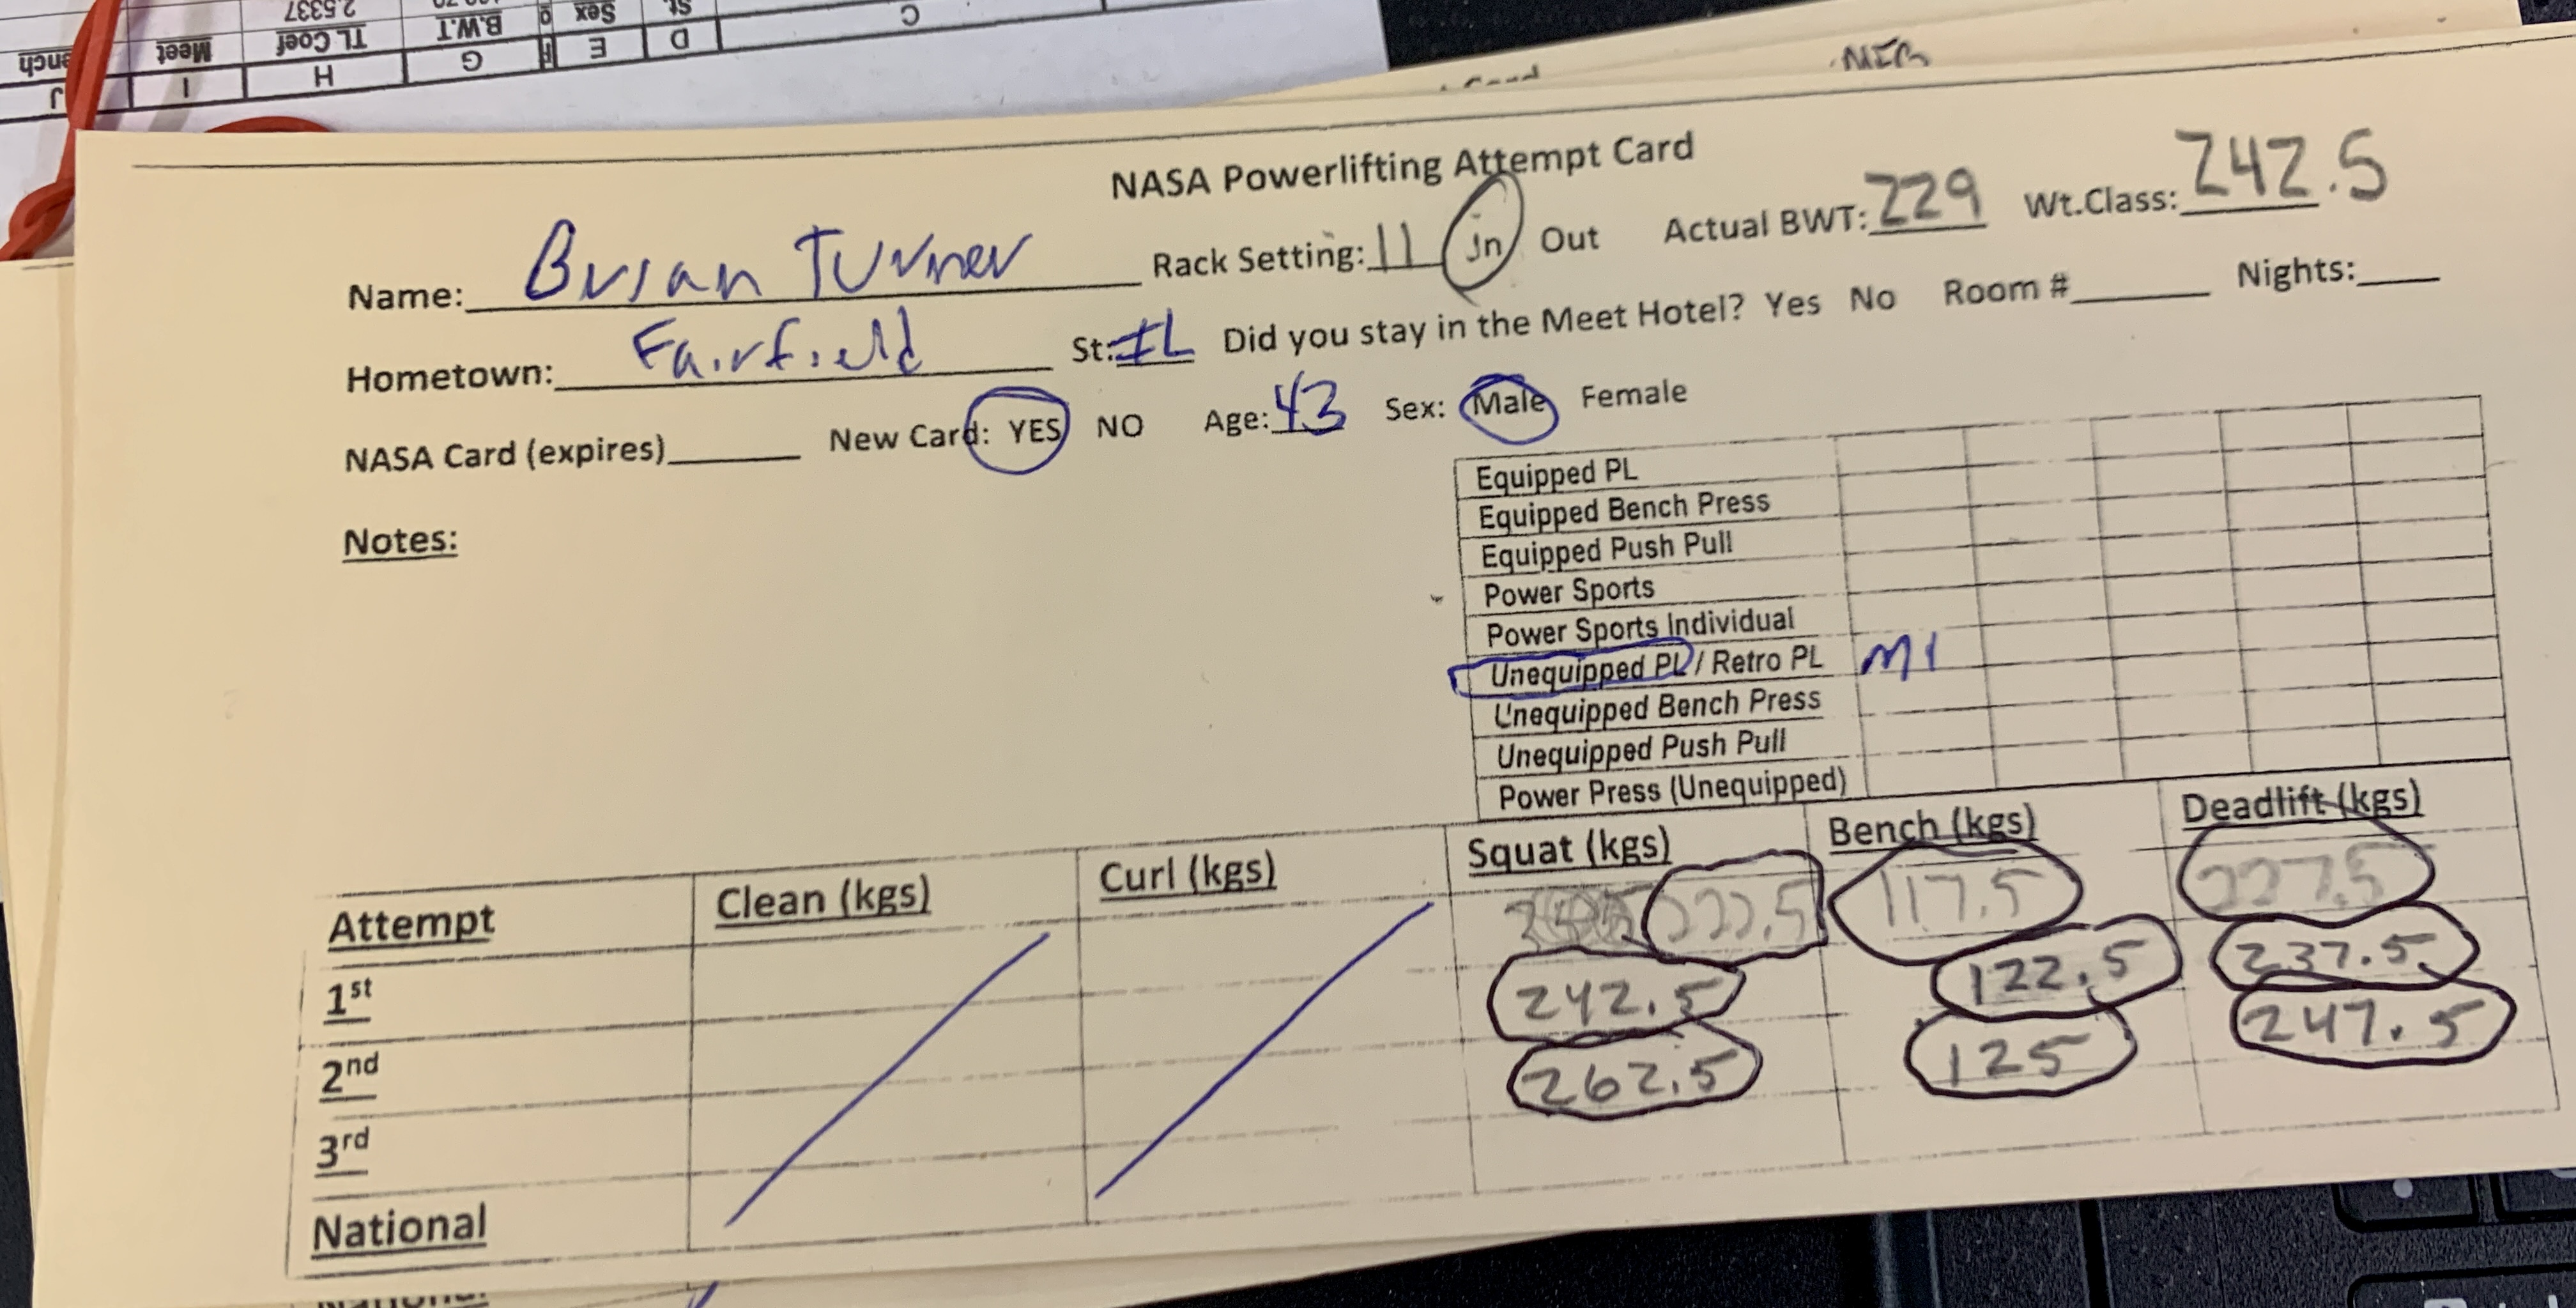 J I H G F E D C
ench Meet TL Coef B.W.T Sex St.
2.5337
NASA Powerlifting Attempt Card
Name: Brian Turner Rack Setting: 11 In Out Actual BWT: 229 Wt.Class: 242.5
Hometown: Fairfield St: IL Did you stay in the Meet Hotel? Yes No Room # Nights:
NASA Card (expires) New Card: YES NO Age: 43 Sex: Male Female
Notes:
Equipped PL
Equipped Bench Press
Equipped Push Pull
Power Sports
Power Sports Individual
Unequipped PL / Retro PL M1
Unequipped Bench Press
Unequipped Push Pull
Power Press (Unequipped)
Attempt Clean (kgs) Curl (kgs) Squat (kgs) Bench (kgs) Deadlift (kgs)
1st 222.5 117.5 227.5
2nd 242.5 122.5 237.5
3rd 262.5 125 247.5
National
National